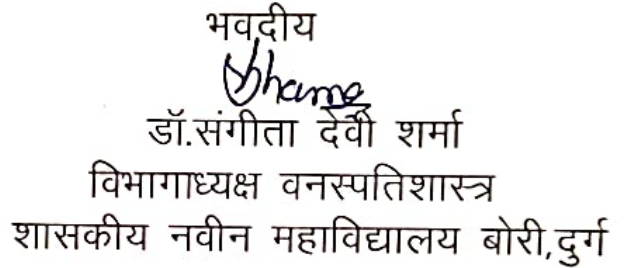 भवदीय
डॉ.संगीता देवी शर्मा
विभागाध्यक्ष वनस्पतिशास्त्र
शासकीय नवीन महाविद्यालय बोरी,दुर्ग